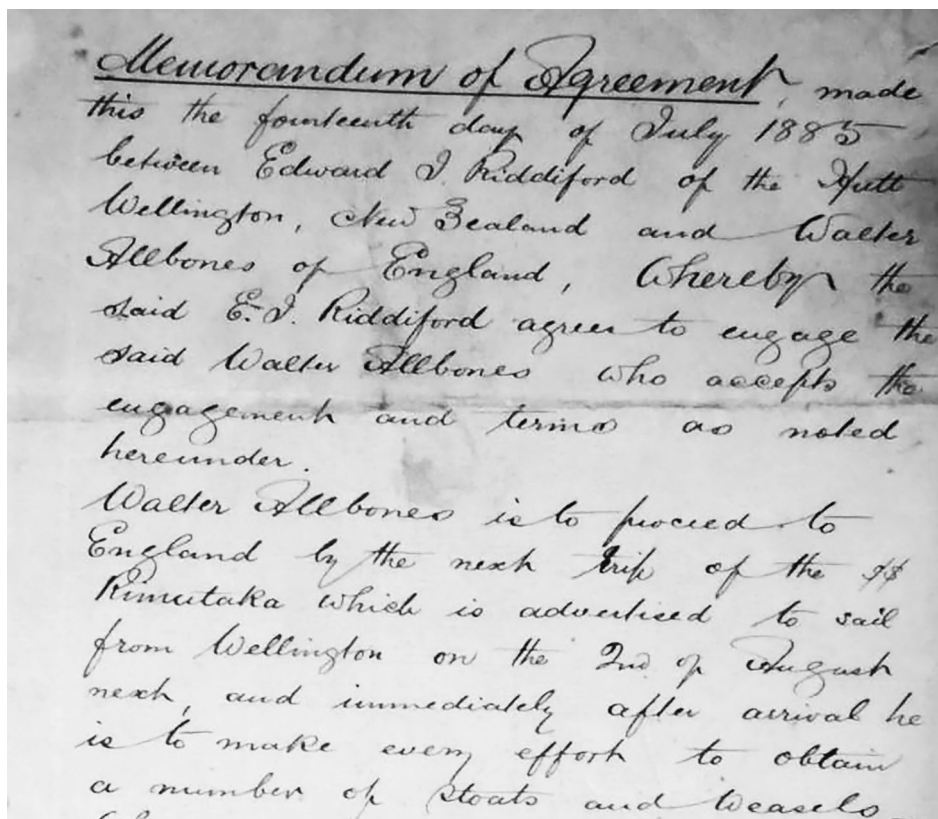 Memorandum of Agreement, made
this the fourteenth day of July 1885
between Edward J. Riddiford of the Hutt
Wellington, New Zealand and Walter
Allbones of England, Whereby the
said E. J. Riddiford agrees to engage the
said Walter Allbones who accepts the
engagement and terms as noted
hereunder.
Walter Allbones is to proceed to
England by the next trip of the SS
Rimutaka which is advertised to sail
from Wellington on the 2nd of August
next, and immediately after arrival he
is to make every effort to obtain
a number of stoats and weasels